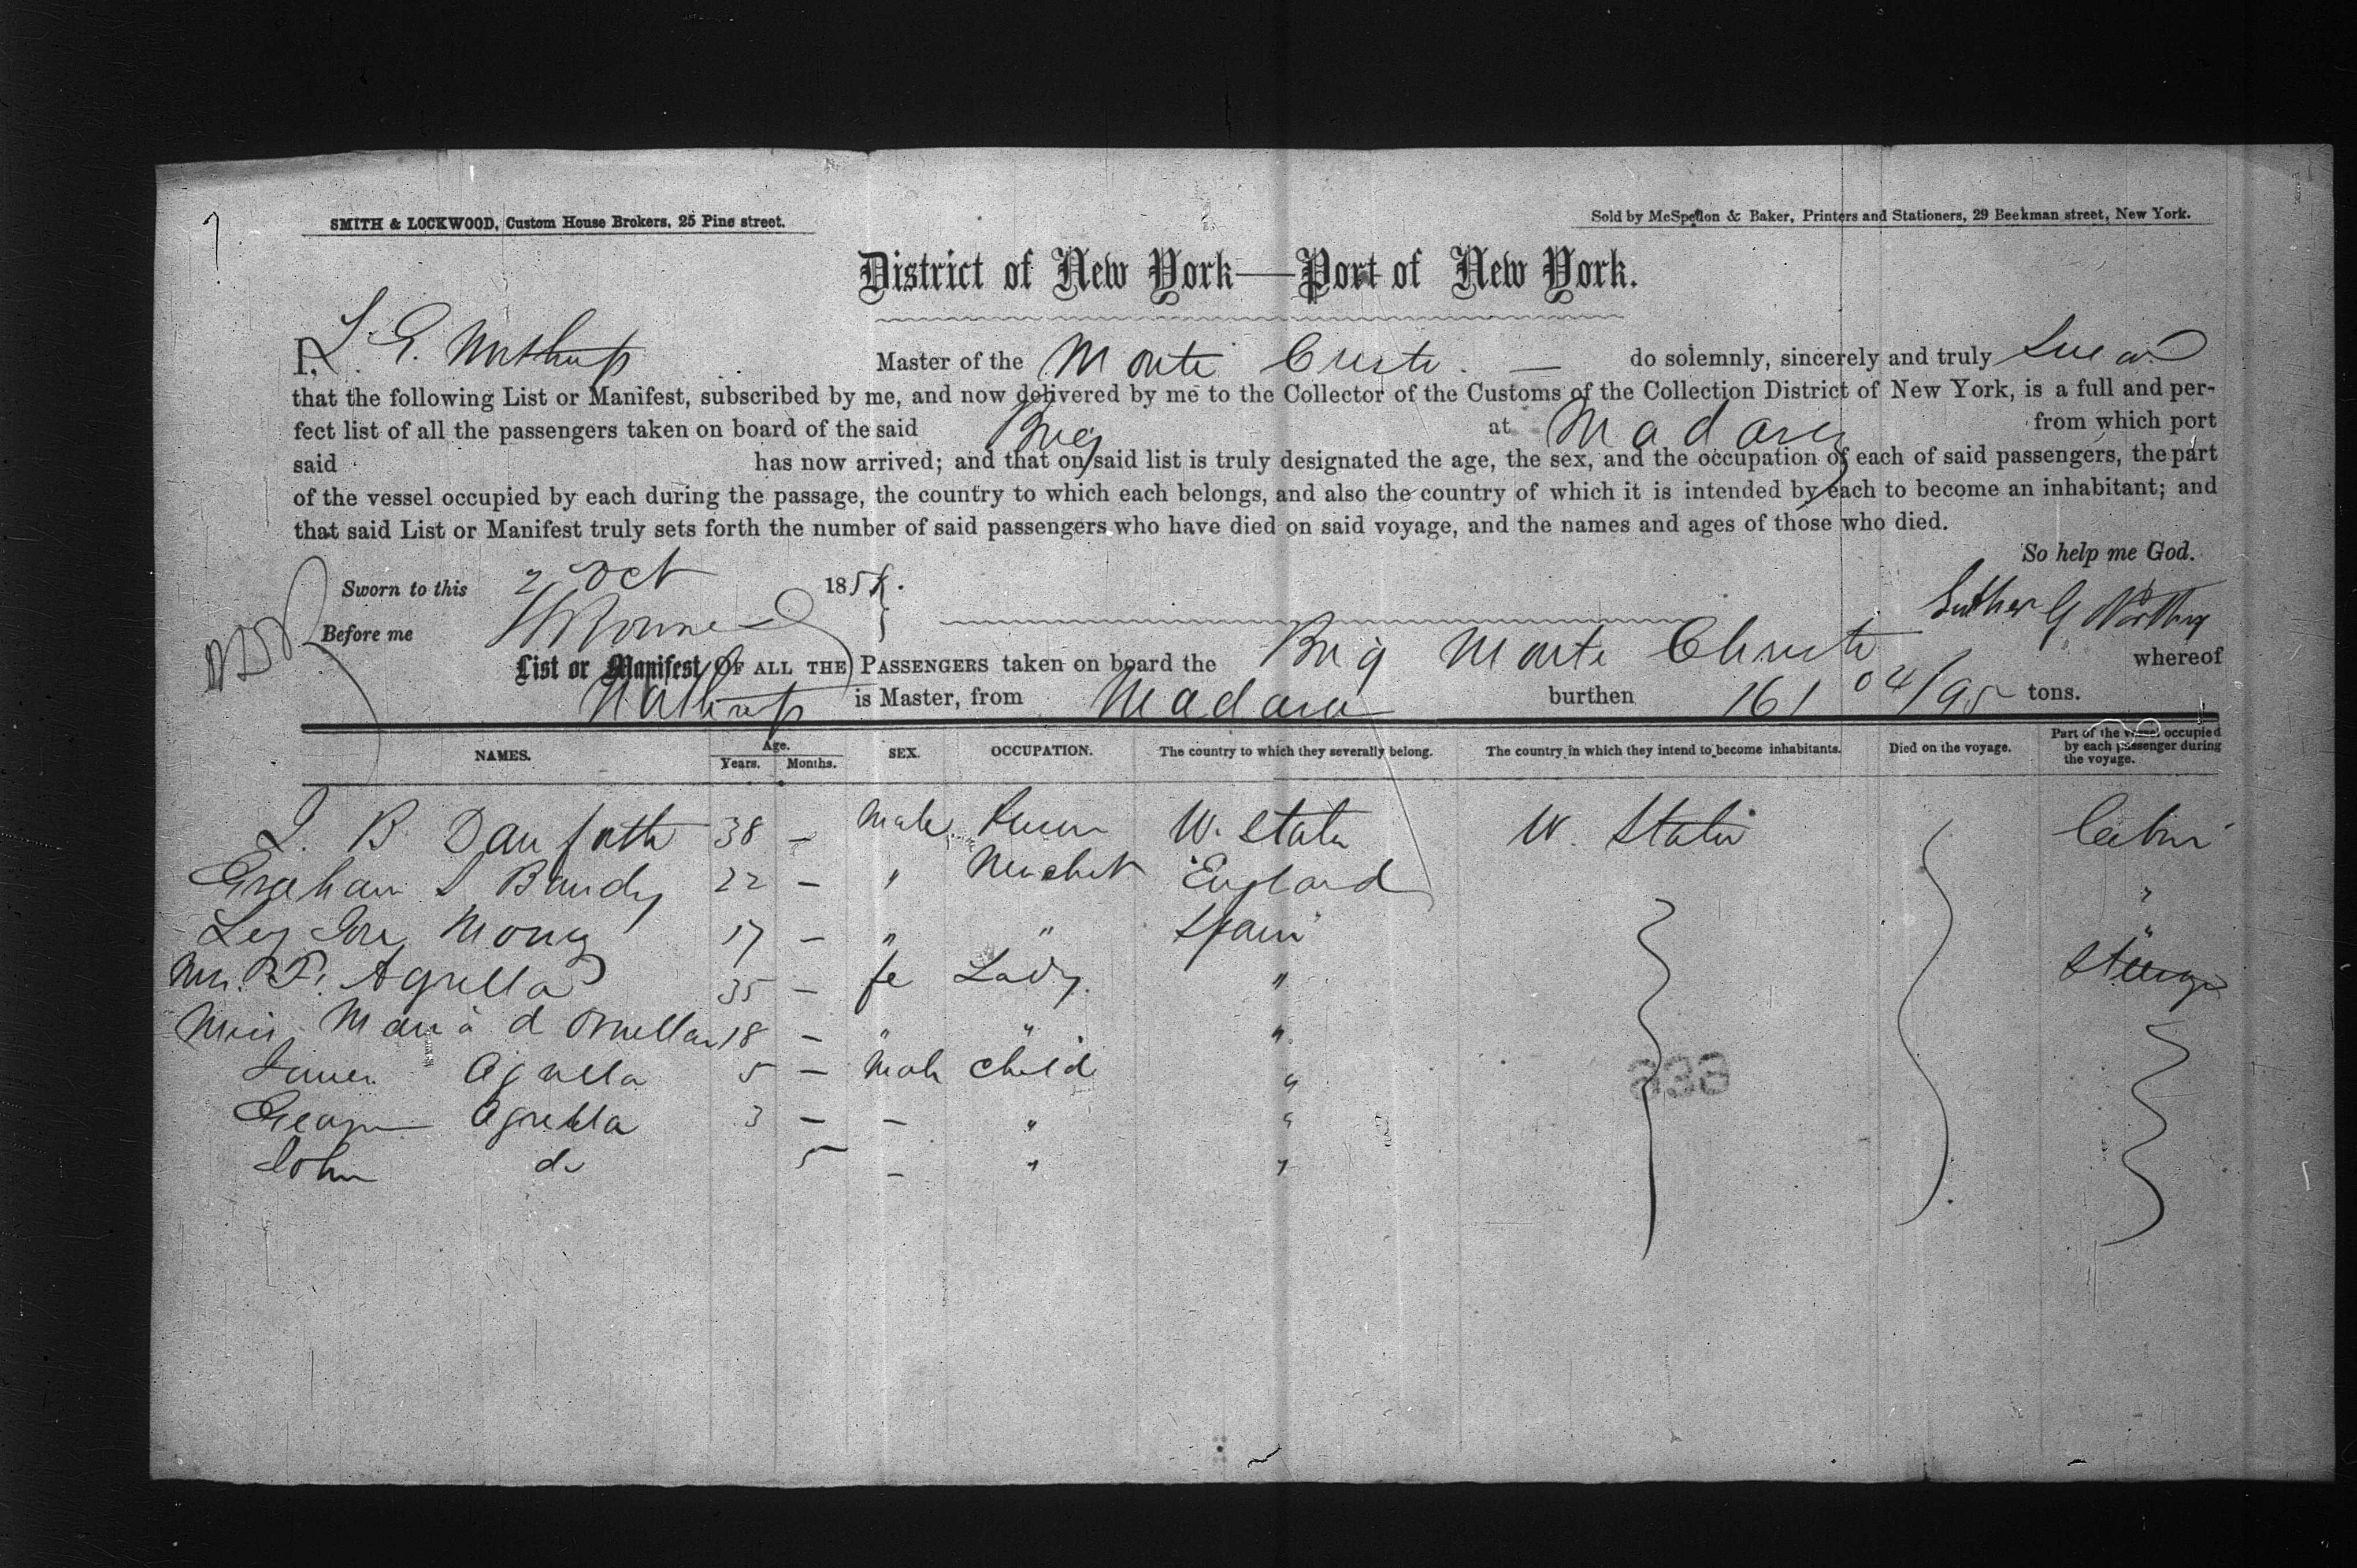 SMITH & LOCKWOOD, Custom House Brokers, 25 Pine street.
Sold by McSpedon & Baker, Printers and Stationers, 29 Beekman street, New York.
District of New York—Port of New York.
I, L. G. Northup Master of the Monte Cristo. — do solemnly, sincerely and truly Swear
that the following List or Manifest, subscribed by me, and now delivered by me to the Collector of the Customs of the Collection District of New York, is a full and per-
fect list of all the passengers taken on board of the said Brig at Madara from which port
said has now arrived; and that on said list is truly designated the age, the sex, and the occupation of each of said passengers, the part
of the vessel occupied by each during the passage, the country to which each belongs, and also the country of which it is intended by each to become an inhabitant; and
that said List or Manifest truly sets forth the number of said passengers who have died on said voyage, and the names and ages of those who died.
So help me God.
Sworn to this 2 Oct 185
Luther G Northup
Before me
List or Manifest OF ALL THE PASSENGERS taken on board the Brig Monte Christo whereof
Northup is Master, from Madara burthen 161 04/95 tons.
NAMES. Age. Years. Months. SEX. OCCUPATION. The country to which they severally belong. The country in which they intend to become inhabitants. Died on the voyage. Part of the vessel occupied by each passenger during the voyage.
J. B. Danforth 38 — Male U. States U. States Cabin
Graham S Bandy 22 — " Merchant England "
17 — " " Spain "
Mrs. F. Agrella 35 — fe Lady. " Steerage
Miss Maria d Ornellas 18 — " " "
James Agrella 5 — Male Child "
George Agrella 3 — — " "
John do 5 — " "